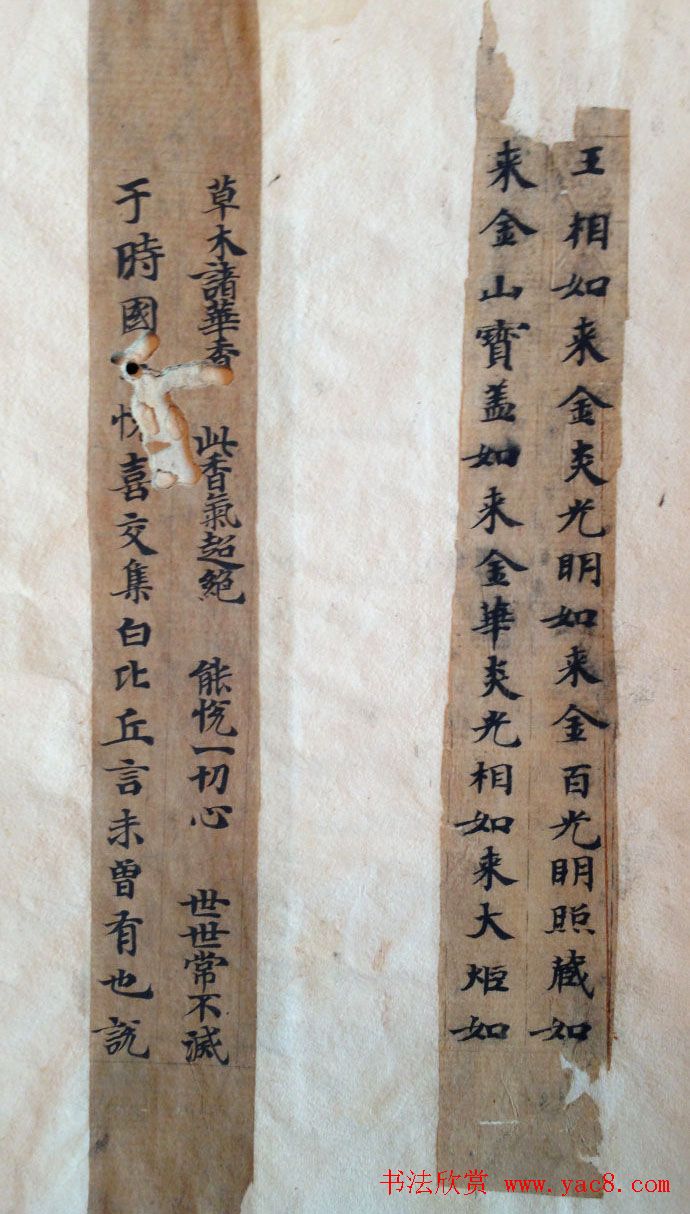 王相如来金炎光明如来金百光明照藏如
来金山寳盖如来金華炎光相如来大炬如
草木諸華香 此香氣超絕 能悅一切心 世世常不滅
于時國 喜交集白比丘言未曾有也說
书法欣赏 www.yac8.com